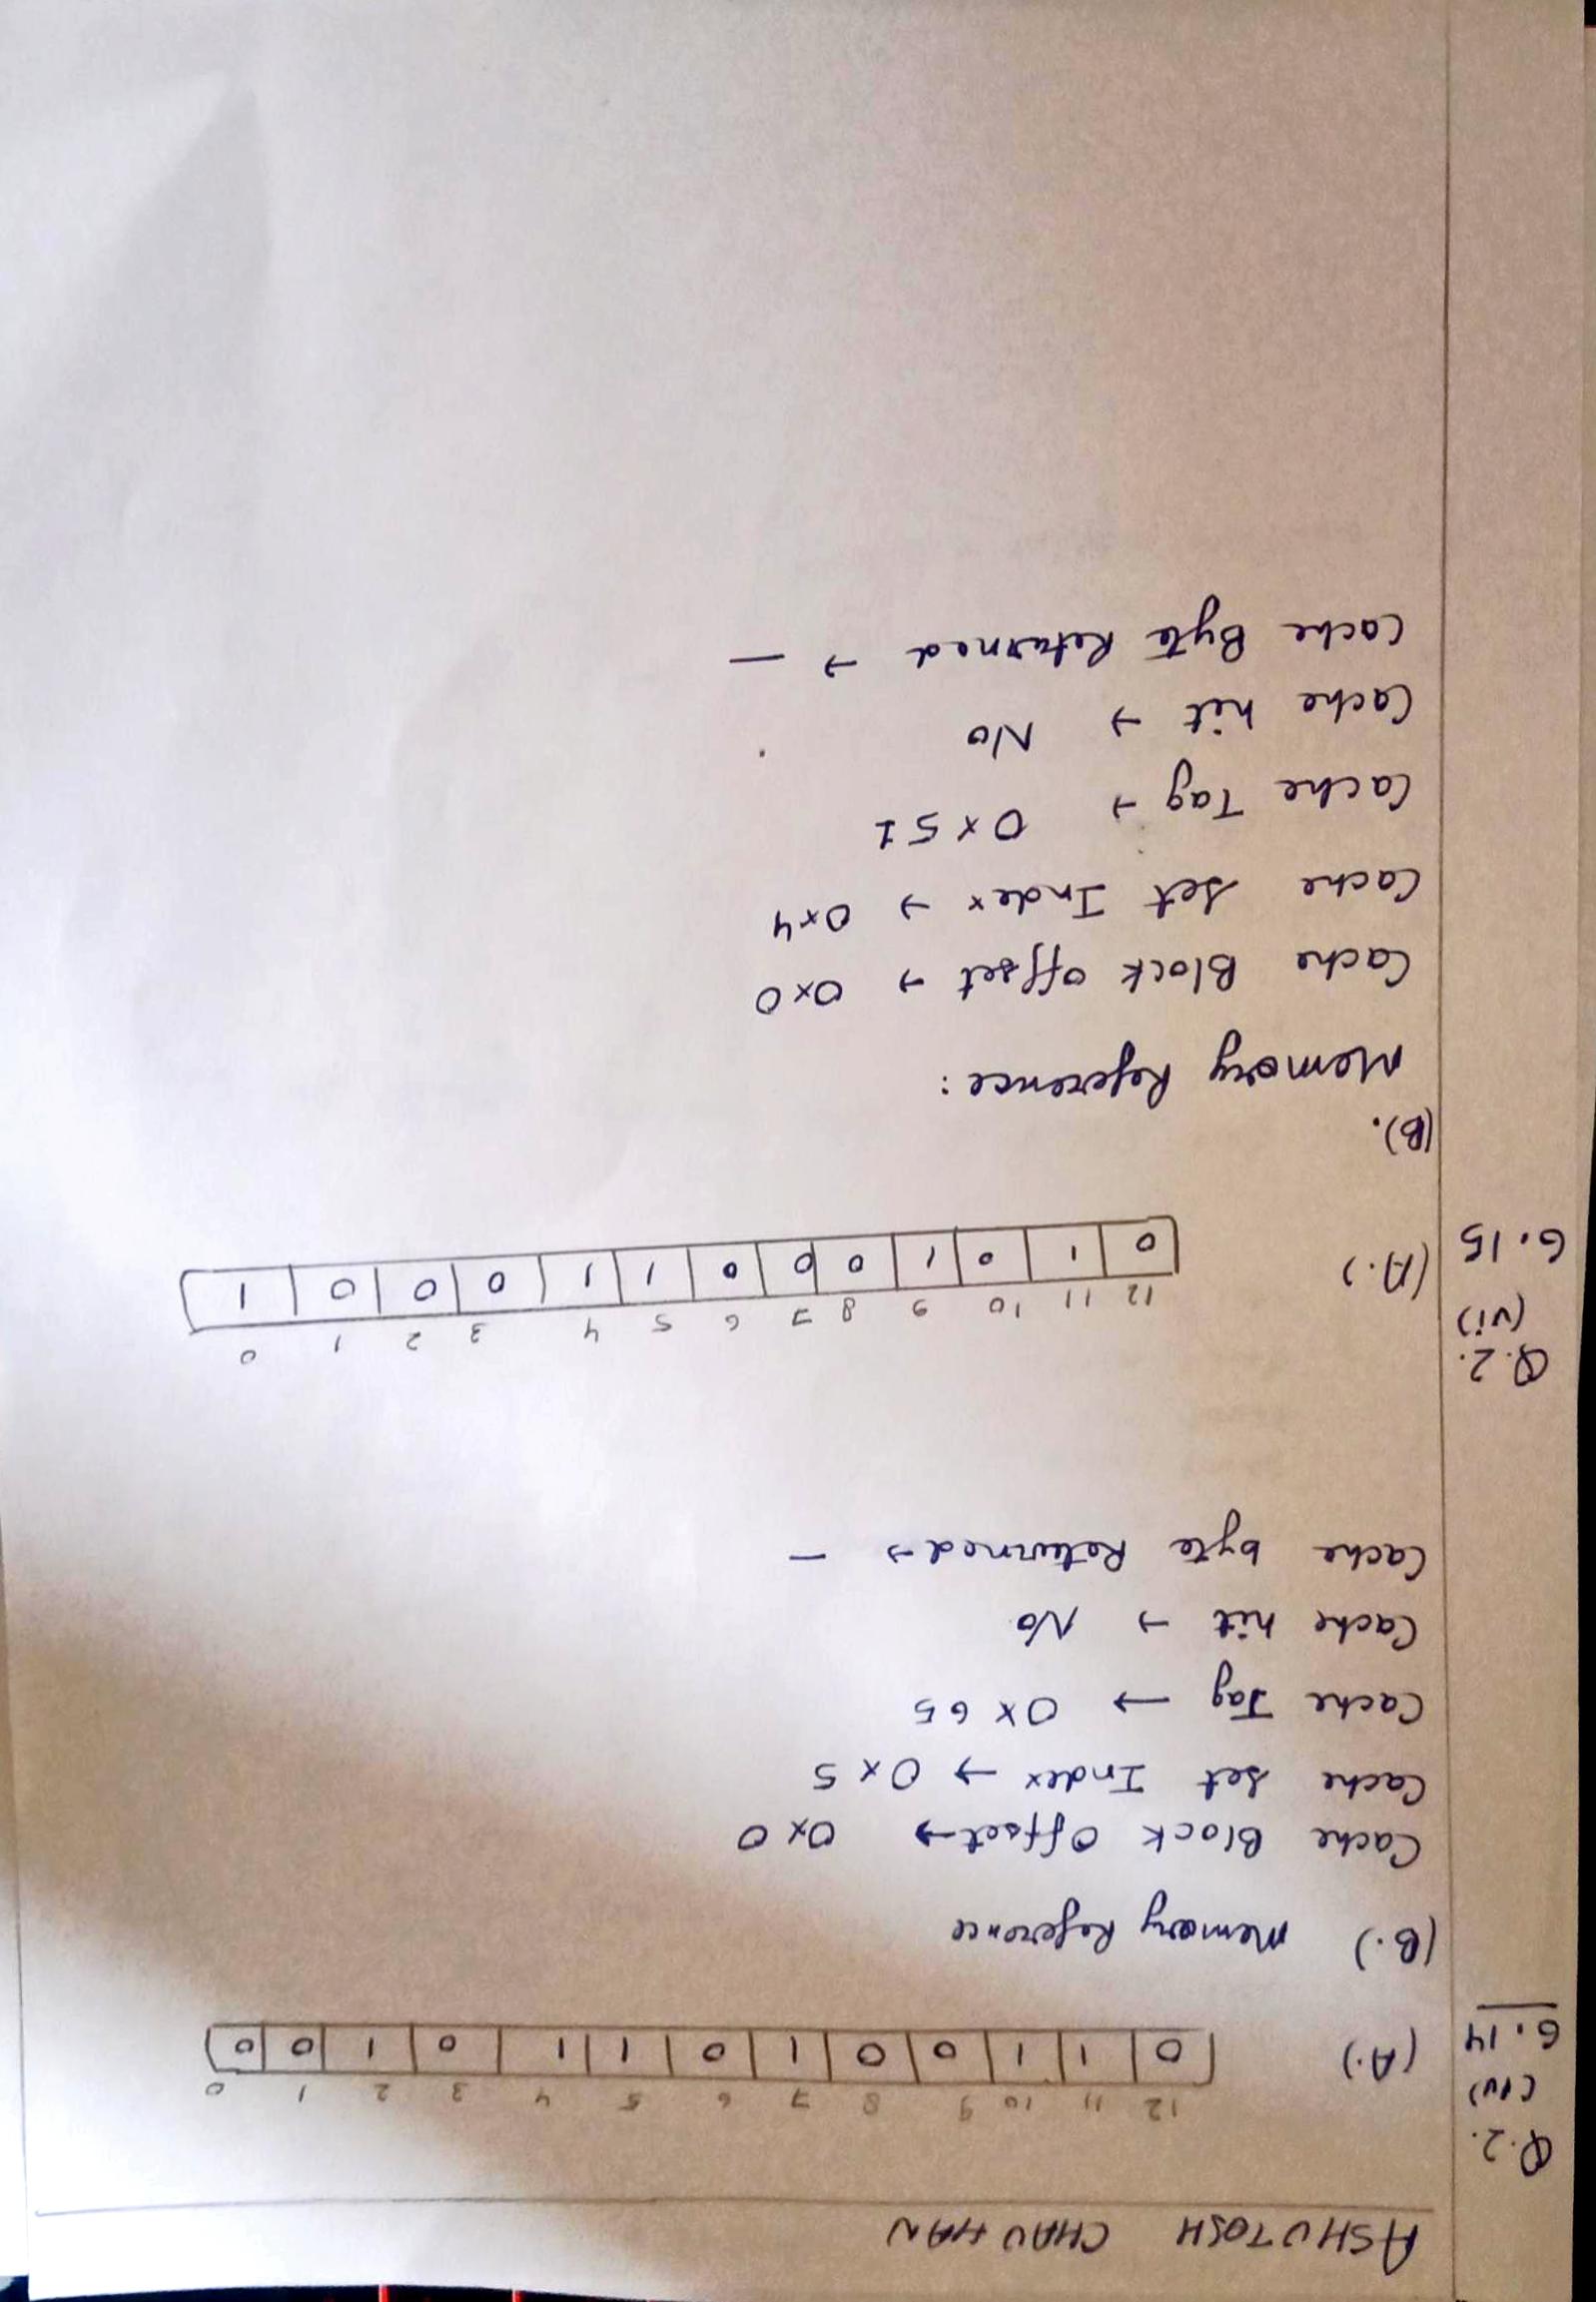 ASHUTOSH CHAUHAN
Q.2.
(iv)
6.14
12 11 10 9 8 7 6 5 4 3 2 1 0
(A.) 0 1 1 0 0 1 0 1 1 0 1 0 0
(B.) Memory Reference
Cache Block Offset → 0x0
Cache Set Index → 0x5
Cache Tag → 0x65
Cache hit → No
Cache byte Returned → -
Q.2.
(vi)
6.15
12 11 10 9 8 7 6 5 4 3 2 1 0
(A.) 0 1 0 1 0 0 0 1 1 0 0 0 1
(B).
Memory Reference:
Cache Block offset → 0x0
Cache Set Index → 0x4
Cache Tag → 0x51
Cache hit → No
Cache Byte Returned → —